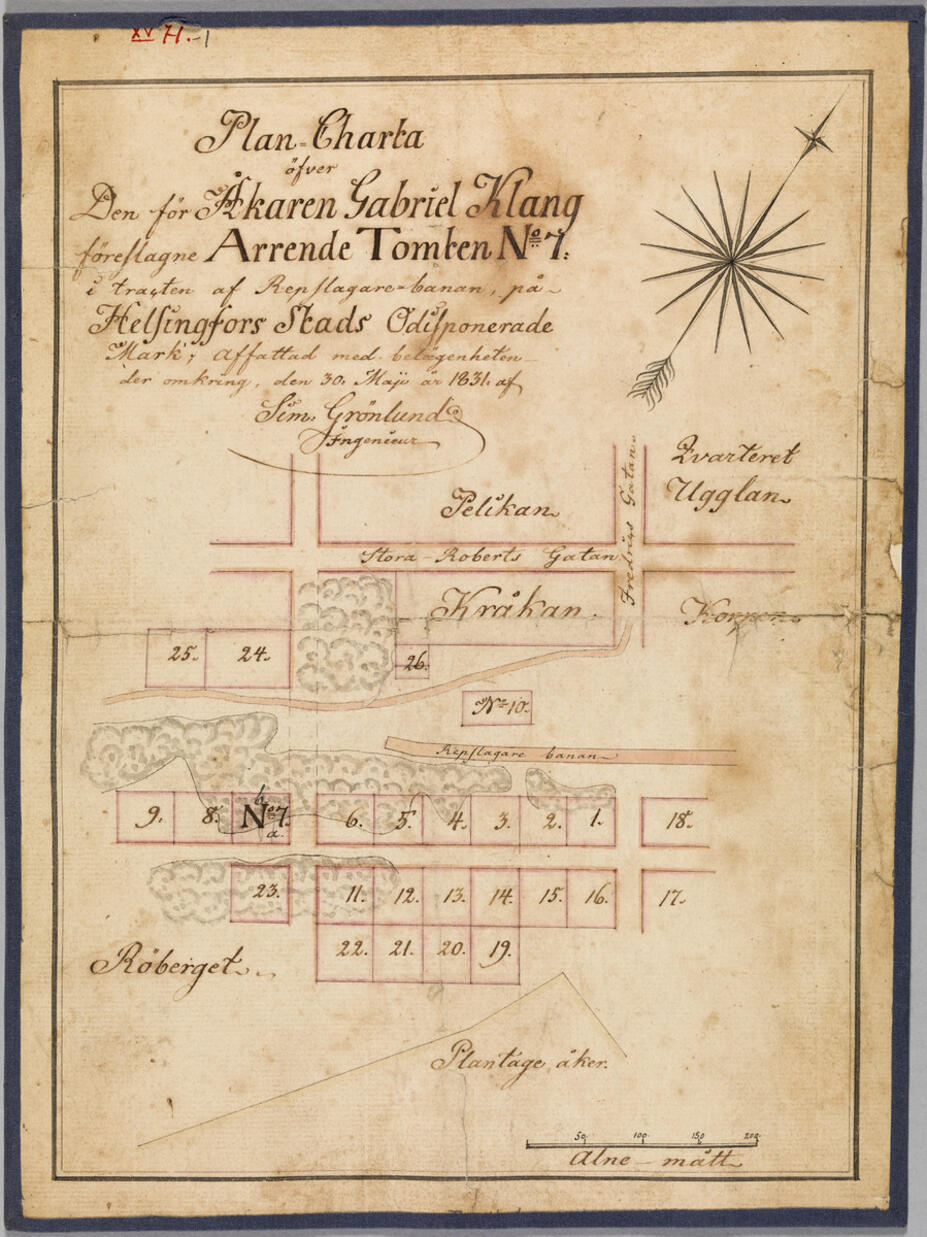 XV 71.-1
Plan-Charta
öfver
Den för Åkaren Gabriel Klang
föreslagne Arrende Tomten No 7.
i trackten af Repslagare-banan, på
Helsingfors Stads Odisponerade
Mark; Affattad med belägenheten
der omkring, den 30. Maji år 1831. af
Sim. Grönlund
Ingenieur
Qvarteret
Ugglan
Pelikan
Fredrics Gatan
Stora-Roberts Gatan
Kråkan.
Korpen
25.
24.
26.
No 10.
Repslagare banan
b.
9.
8.
No 7.
6.
5.
4.
3.
2.
1.
18.
a.
23.
11.
12.
13.
14.
15.
16.
17.
22.
21.
20.
19.
Röberget
Plantage åker.
50.
100.
150
200.
Alne-mått